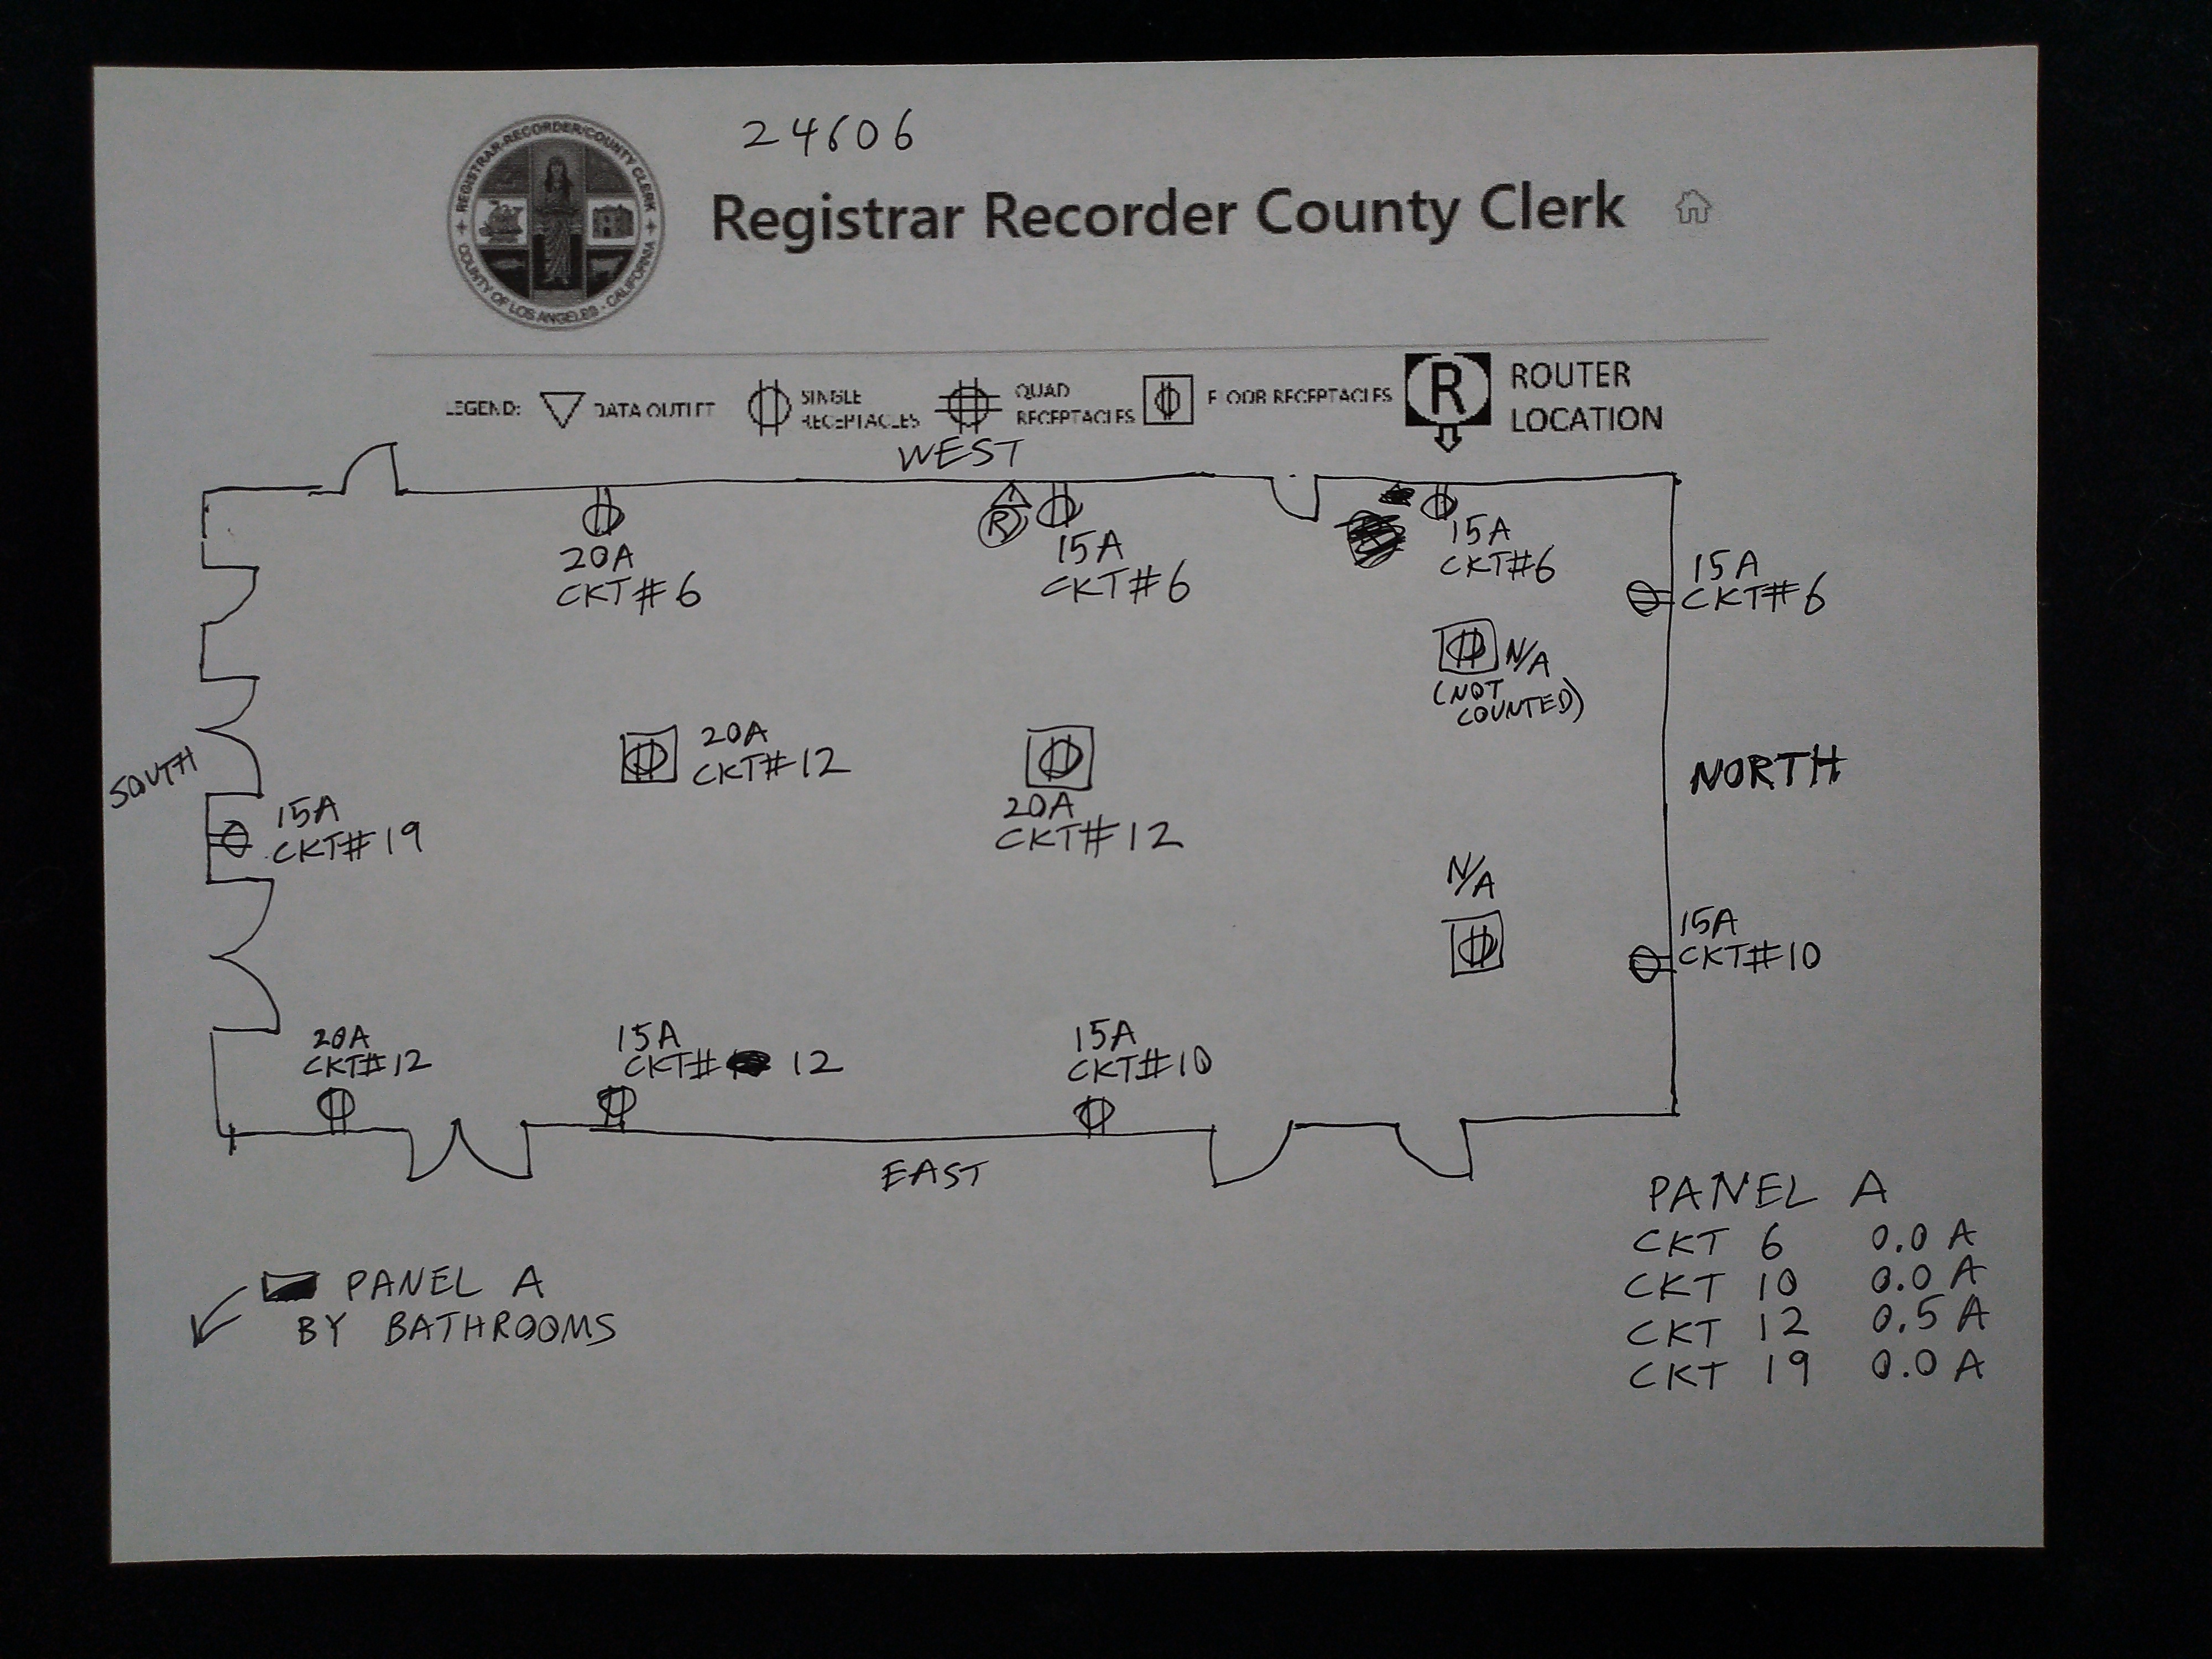 24606
REGISTRAR-RECORDER/COUNTY CLERK
COUNTY OF LOS ANGELES - CALIFORNIA
Registrar Recorder County Clerk
LEGEND: DATA OUTLET
SINGLE
RECEPTACLES
QUAD
RECEPTACLES
FLOOR RECEPTACLES
R
ROUTER
LOCATION
WEST
R
20A
CKT#6
15A
CKT#6
15A
CKT#6
15A
CKT#6
N/A
(NOT
COUNTED)
SOUTH
20A
CKT#12
20A
CKT#12
NORTH
15A
CKT#19
N/A
15A
CKT#10
20A
CKT#12
15A
CKT# 12
15A
CKT#10
EAST
PANEL A
BY BATHROOMS
PANEL A
CKT 6 0.0 A
CKT 10 0.0 A
CKT 12 0.5 A
CKT 19 0.0 A